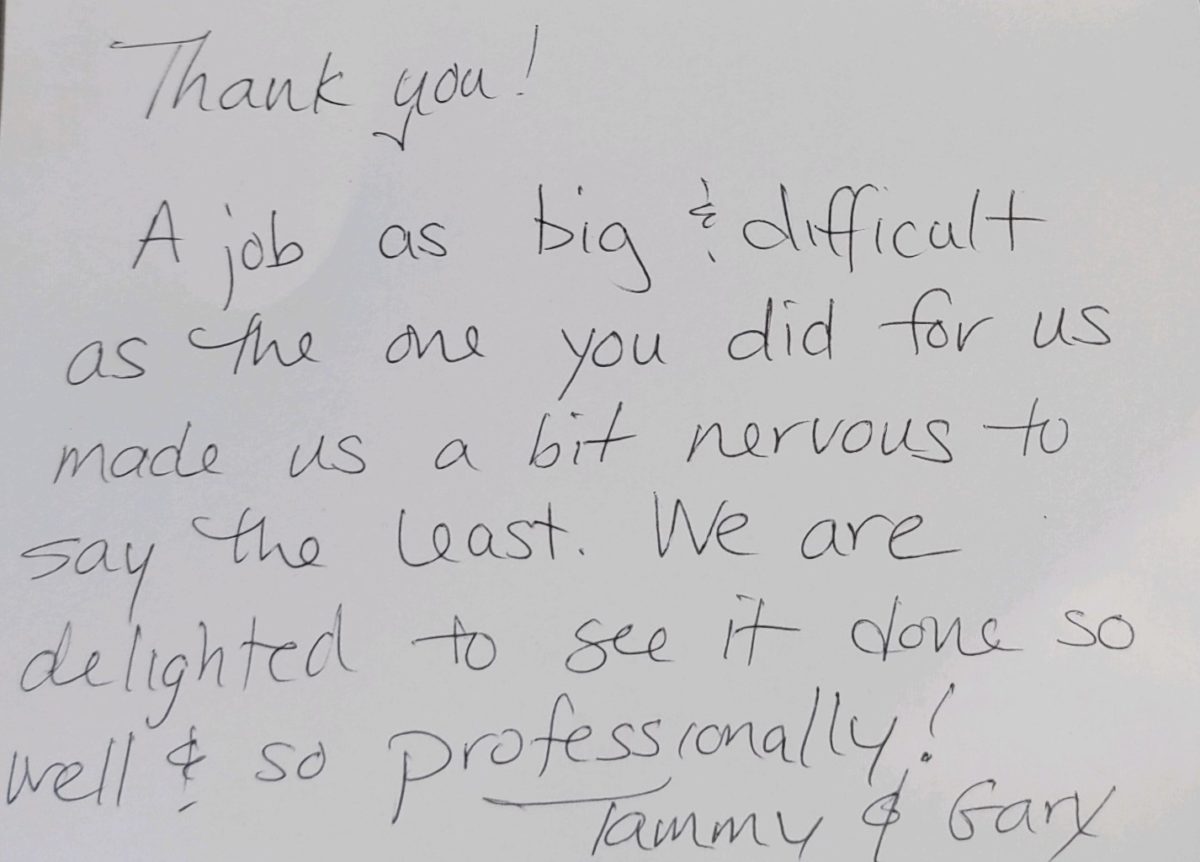 Thank you!
A job as big & difficult
as the one you did for us
made us a bit nervous to
say the least. We are
delighted to see it done so
well & so professionally!
Tammy & Gary